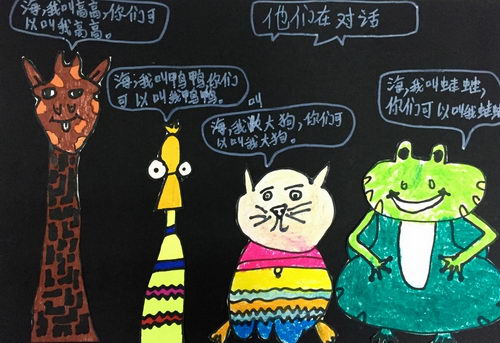 海,我叫高高,你们可
以叫我高高。
他们在对话
海,我叫鸭鸭,你们
可以叫我鸭鸭。
叫
海,我大狗,你们可
以叫我大狗。
海,我叫蛙蛙,
你们可以叫我蛙蛙